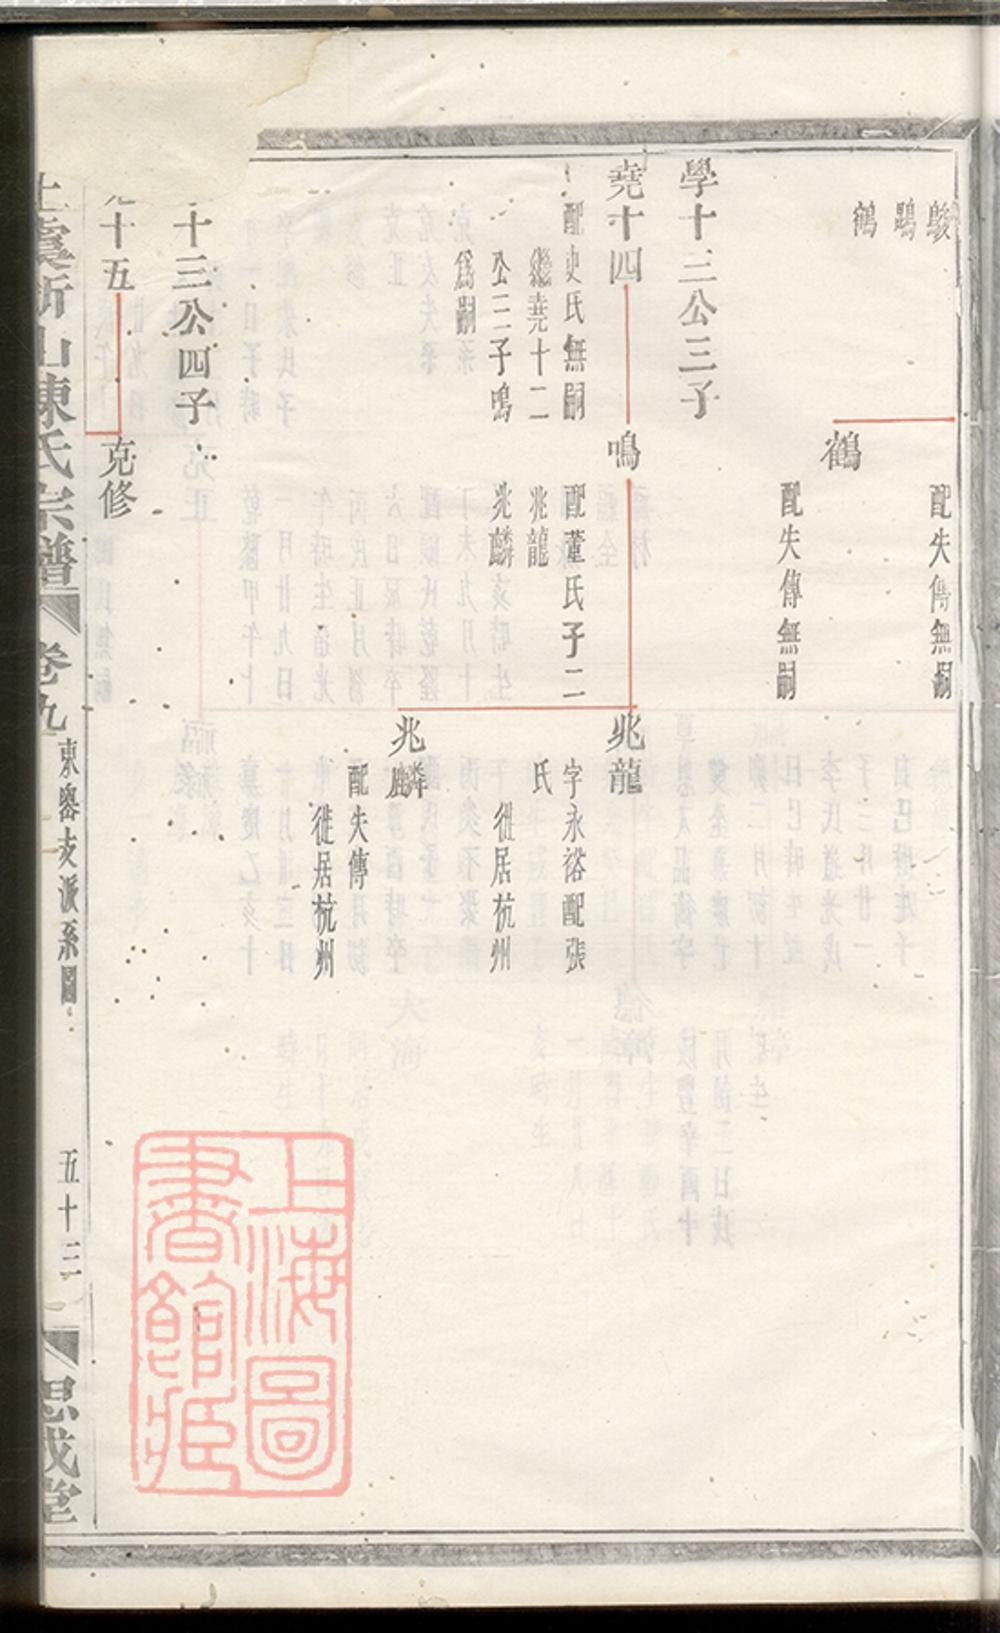 鵔
鵾
鶴
配失傳無嗣
鶴
配失傳無嗣
學十三公三子
堯十四
配史氏無嗣
繼堯十二
公三子鳴
爲嗣
鳴
配董氏子二
兆龍
兆麟
兆龍
字永裕配張
氏
徙居杭州
兆麟
配失傳
徙居杭州
十三公四子
十五
克修
上虞新山陳氏宗譜
卷九
東嶴支派系圖
五十三
思成堂
上海圖
書館藏